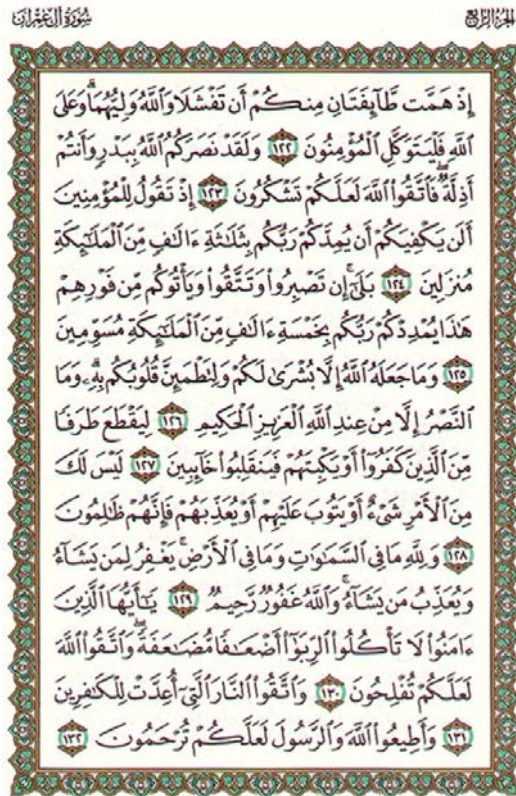 الجزء الرابع
سورة آل عمران
إِذْ هَمَّت طَّآئِفَتَانِ مِنكُمْ أَن تَفْشَلَا وَٱللَّهُ وَلِيُّهُمَاۗ وَعَلَى
ٱللَّهِ فَلْيَتَوَكَّلِ ٱلْمُؤْمِنُونَ ١٢٢ وَلَقَدْ نَصَرَكُمُ ٱللَّهُ بِبَدْرٍ وَأَنتُمْ
أَذِلَّةٌۖ فَٱتَّقُوا۟ ٱللَّهَ لَعَلَّكُمْ تَشْكُرُونَ ١٢٣ إِذْ تَقُولُ لِلْمُؤْمِنِينَ
أَلَن يَكْفِيَكُمْ أَن يُمِدَّكُمْ رَبُّكُم بِثَلَٰثَةِ ءَالَٰفٍ مِّنَ ٱلْمَلَٰٓئِكَةِ
مُنزَلِينَ ١٢٤ بَلَىٰٓۚ إِن تَصْبِرُوا۟ وَتَتَّقُوا۟ وَيَأْتُوكُم مِّن فَوْرِهِمْ
هَٰذَا يُمْدِدْكُمْ رَبُّكُم بِخَمْسَةِ ءَالَٰفٍ مِّنَ ٱلْمَلَٰٓئِكَةِ مُسَوِّمِينَ
١٢٥ وَمَا جَعَلَهُ ٱللَّهُ إِلَّا بُشْرَىٰ لَكُمْ وَلِتَطْمَئِنَّ قُلُوبُكُم بِهِۦۗ وَمَا
ٱلنَّصْرُ إِلَّا مِنْ عِندِ ٱللَّهِ ٱلْعَزِيزِ ٱلْحَكِيمِ ١٢٦ لِيَقْطَعَ طَرَفًا
مِّنَ ٱلَّذِينَ كَفَرُوٓا۟ أَوْ يَكْبِتَهُمْ فَيَنقَلِبُوا۟ خَآئِبِينَ ١٢٧ لَيْسَ لَكَ
مِنَ ٱلْأَمْرِ شَىْءٌ أَوْ يَتُوبَ عَلَيْهِمْ أَوْ يُعَذِّبَهُمْ فَإِنَّهُمْ ظَٰلِمُونَ
١٢٨ وَلِلَّهِ مَا فِى ٱلسَّمَٰوَٰتِ وَمَا فِى ٱلْأَرْضِۚ يَغْفِرُ لِمَن يَشَآءُ
وَيُعَذِّبُ مَن يَشَآءُۚ وَٱللَّهُ غَفُورٌ رَّحِيمٌ ١٢٩ يَٰٓأَيُّهَا ٱلَّذِينَ
ءَامَنُوا۟ لَا تَأْكُلُوا۟ ٱلرِّبَوٰٓا۟ أَضْعَٰفًا مُّضَٰعَفَةًۖ وَٱتَّقُوا۟ ٱللَّهَ
لَعَلَّكُمْ تُفْلِحُونَ ١٣٠ وَٱتَّقُوا۟ ٱلنَّارَ ٱلَّتِىٓ أُعِدَّتْ لِلْكَٰفِرِينَ
١٣١ وَأَطِيعُوا۟ ٱللَّهَ وَٱلرَّسُولَ لَعَلَّكُمْ تُرْحَمُونَ ١٣٢